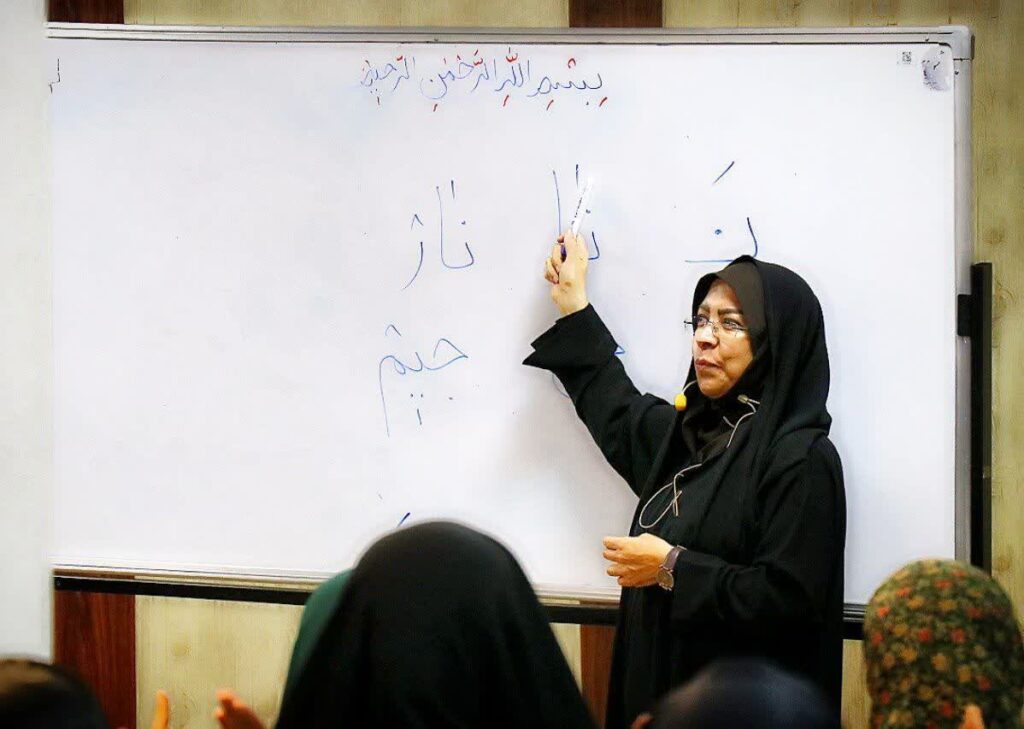 بِسْمِ اللَّهِ الرَّحْمٰنِ الرَّحِیمِ
نَ نا
جیم